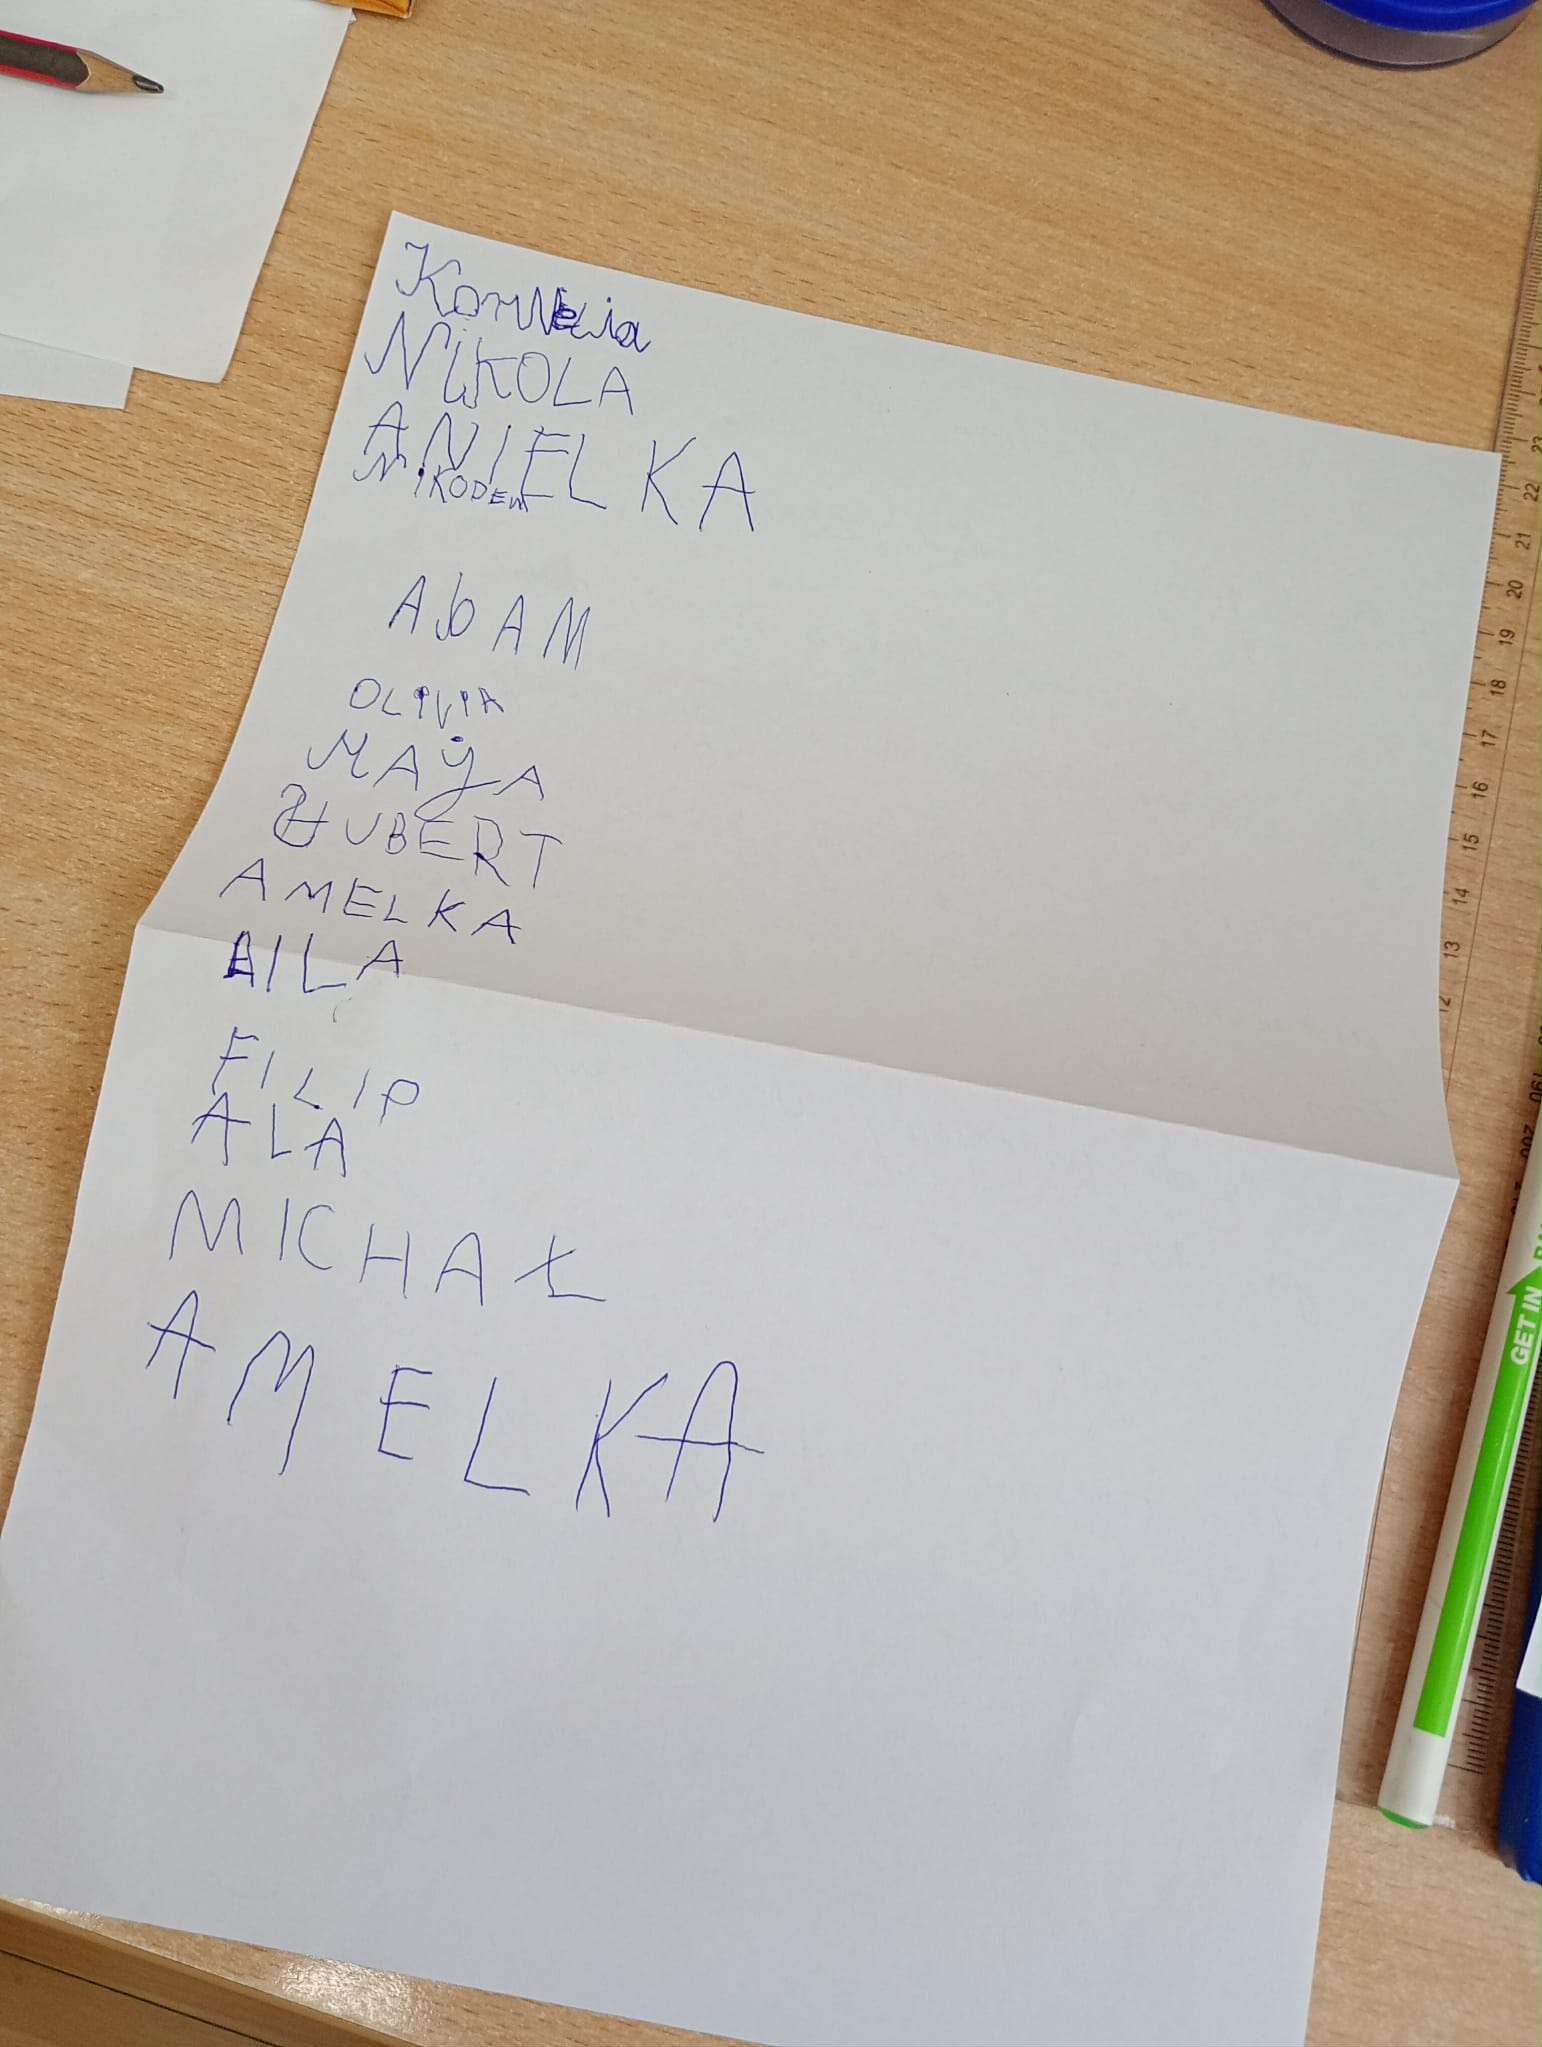 Kornelia
NIKOLA
ANIELKA
NIKODEM
ADAM
OLIVIA
MAJA
HUBERT
AMELKA
LILA
FILIP
ALA
MICHAŁ
AMELKA
GET IN
23
22
21
20
19
18
17
16
15
14
13
12